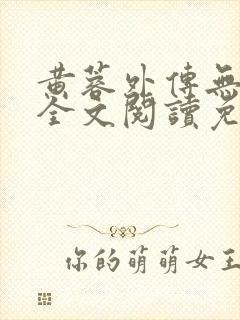 黄蓉外傳無
全文閱讀免
你的萌萌女王